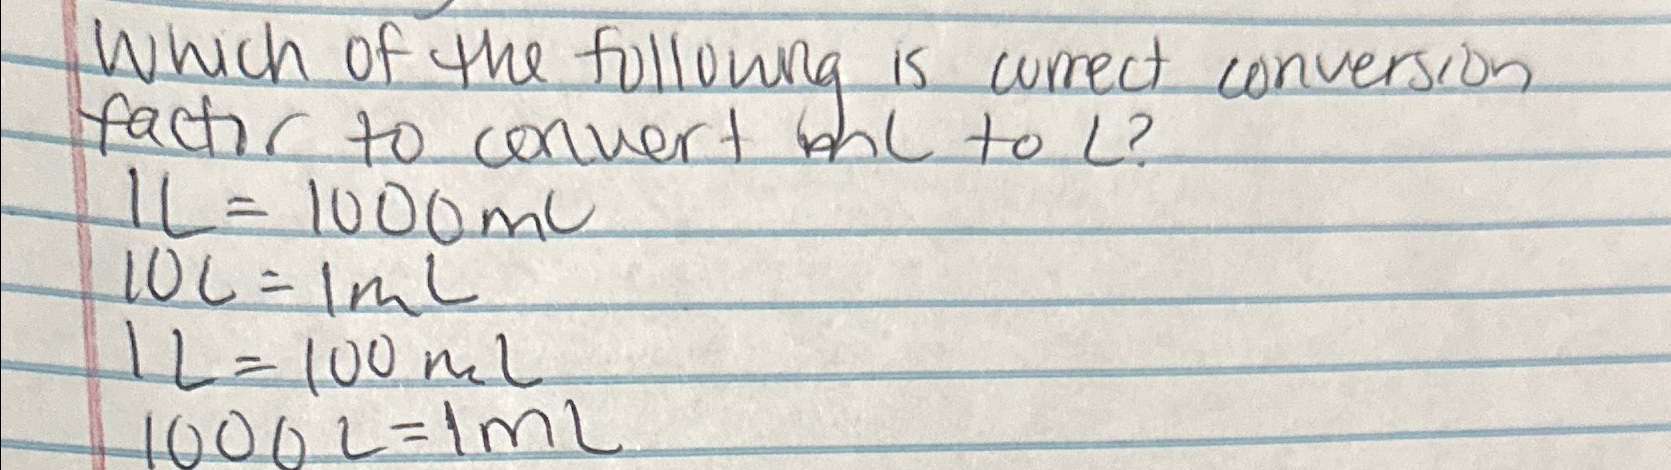 Which of the following is correct conversion
factor to convert mL to L?
1L = 1000mL
10L = 1mL
1L = 100mL
1000L = 1mL